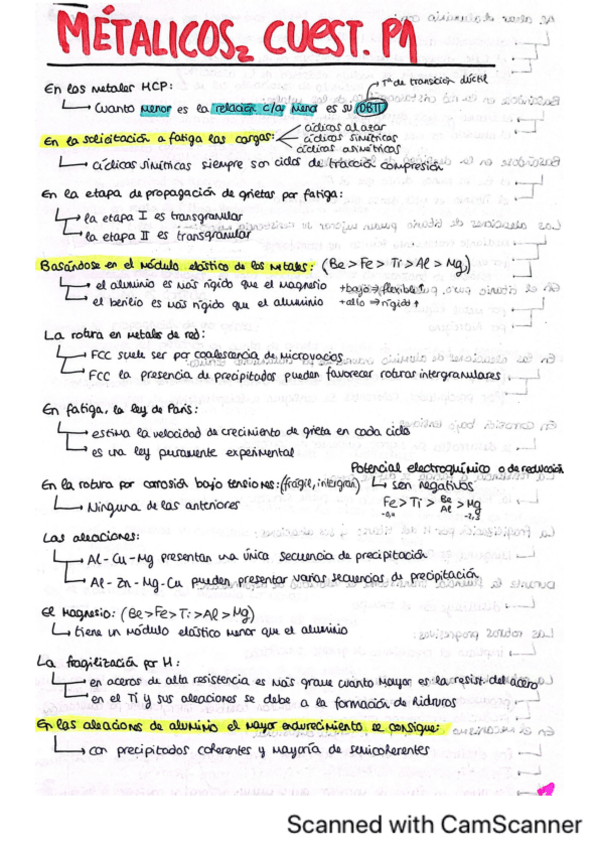 MÉTALICOS, CUEST. P1
En los metales HCP:
Tª de transición dúctil
Cuanto menor es la relación c/a, menor es su DBTT
En la solicitación a fatiga las cargas:
cíclicas al azar
cíclicas simétricas
cíclicas asimétricas
cíclicas simétricas siempre son ciclos de tracción compresión
En la etapa de propagación de grietas por fatiga:
la etapa I es transgranular
la etapa II es transgranular
Basándose en el módulo elástico de los metales: (Be > Fe > Ti > Al > Mg)
el aluminio es más rígido que el magnesio +bajo → flexible ↑
el berilio es más rígido que el aluminio +alto → rígido ↑
La rotura en metales de red:
FCC suele ser por coalescencia de microvacíos
FCC la presencia de precipitados pueden favorecer roturas intergranulares.
En fatiga, la ley de París:
estima la velocidad de crecimiento de grieta en cada ciclo
es una ley puramente experimental
Potencial electroquímico o de reducción
En la rotura por corrosión bajo tensiones: (frágil, intergran) son negativos
Fe > Ti > Be Al > Mg
Ninguna de las anteriores
Las aleaciones:
Al - Cu - Mg presentan una única secuencia de precipitación
Al - Zn - Mg - Cu pueden presentar varias secuencias de precipitación
El Magnesio: (Be > Fe > Ti > Al > Mg)
tiene un módulo elástico menor que el aluminio
La fragilización por H:
en aceros de alta resistencia es más grave cuanto mayor es la resist. del acero
en el Ti y sus aleaciones se debe a la formación de hidruros
En las aleaciones de aluminio el mayor endurecimiento se consigue:
con precipitados coherentes y mayoría de semicoherentes
Scanned with CamScanner